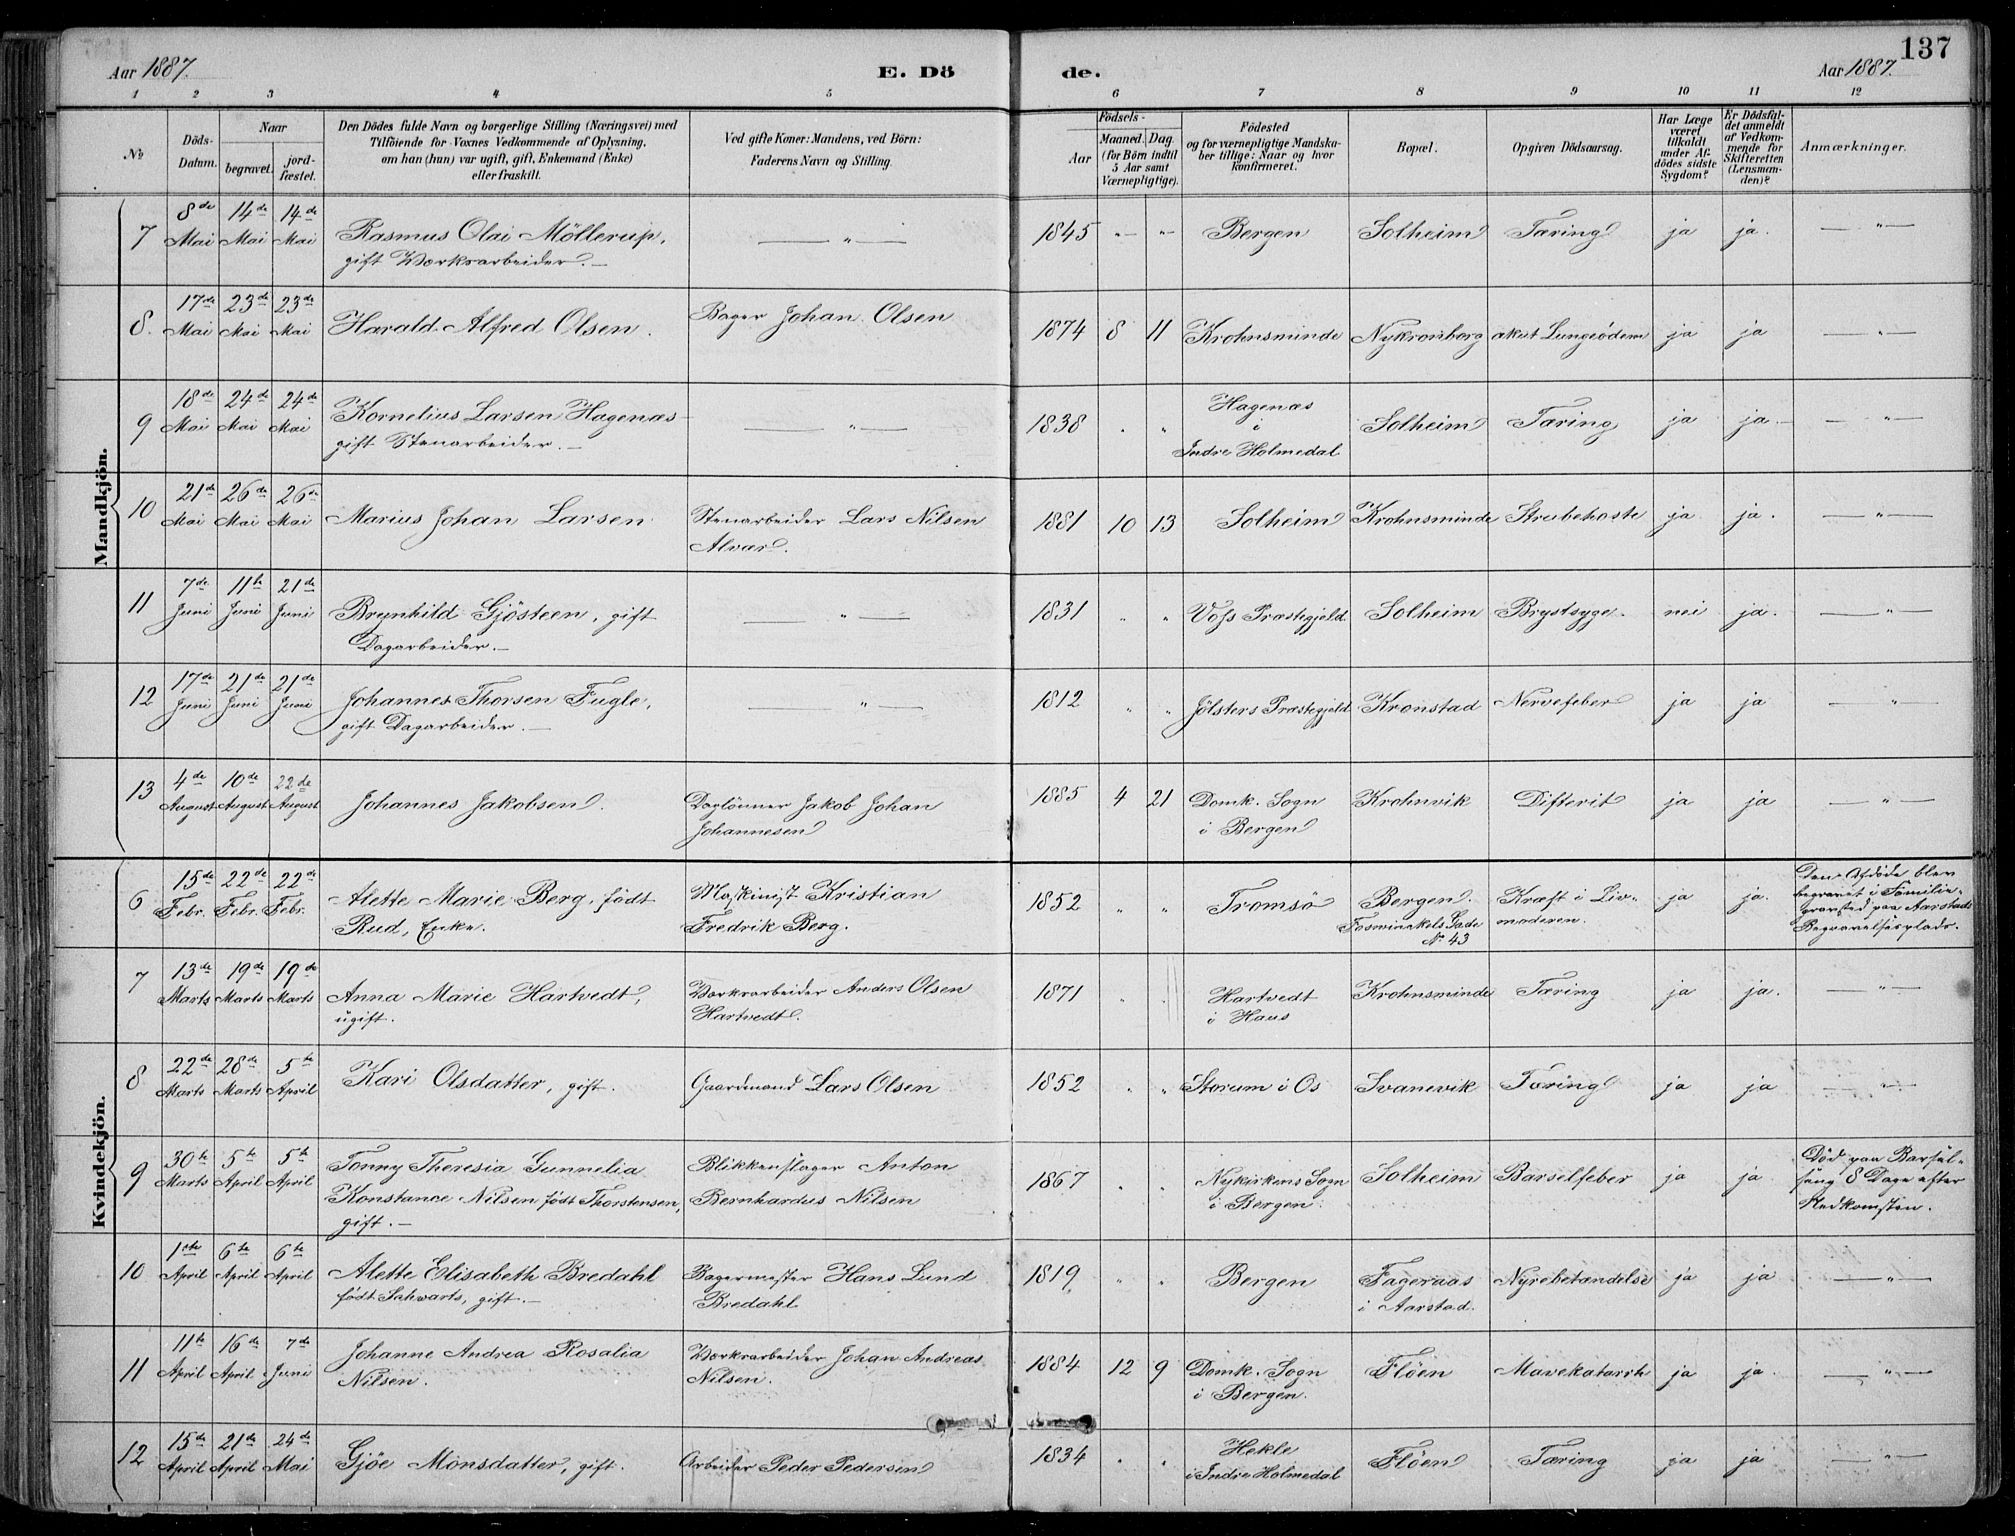 137
Aar 1887.
E. Dö
de.
Aar 1887.
1 2 3 4 5 6 7 8 9 10 11 12
№
Döds-Datum.
Naar
begravet.
jord-fæstet.
Den Dödes fulde Navn og borgerlige Stilling (Næringsvei) med
Tilföiende for Voxnes Vedkommende af Oplysning,
om han (hun) var ugift, gift, Enkemand (Enke)
eller fraskilt.
Ved gifte Koner: Mandens, ved Börn:
Faderens Navn og Stilling.
Födsels-
Aar
Maaned.
Dag.
(for Börn indtil
5 Aar samt
Værnepligtige).
Födested
og for værnepligtige Mandska-
ber tillige: Naar og hvor
konfirmeret.
Bopæl.
Opgiven Dödsaarsag.
Har Læge
været
tilkaldt
under Af-
dödes sidste
Sygdom?
Er Dödsfal-
det anmeldt
af Vedkom-
mende for
Skifteretten
(Lensman-
den)?
Anmærkninger.
Mandkjön.
7 8de Mai 14de Mai 14de Mai Rasmus Olai Möllerup, — „ — 1845 „ „ Bergen Solheim Tæring ja ja. — „ —
gift Værksarbeider. —
8. 17de Mai 23de Mai 23de Mai Harald Alfred Olsen. Bager Johan Olsen 1874 8 11 Krohnsminde Nykronborg akut Lungeödem ja ja — „ —
9 18de Mai 24de Mai 24de Mai Kornelius Larsen Hagenæs — „ — 1838 „ „ Hagenæs i Indre Holmedal Solheim Tæring ja ja. — „ —
gift Stenarbeider. —
10 21de Mai 26de Mai 26de Mai Marius Johan Larsen Stenarbeider Lars Nilsen Alvær. 1881 10 13 Solheim Krohnsminde Strubehoste ja ja. — „ —
11 7de Juni 11te Juni 21de Juni Brynhild Gjösteen, gift — „ — 1831 „ „ Voss Præstegjeld Solheim Brystsyge. nei ja. — „ —
Dagarbeider. —
12 17de Juni 21de Juni 21de Juni Johannes Thorsen Fugle, — „ — 1812 „ „ Jölsters Præstegjeld Kronstad Nervefeber ja ja — „ —
gift Dagarbeider. —
13 4de August 10de August 22de August Johannes Jakobsen. Daglönner Jakob Johan Johannesen 1885 4 21 Domk. Sogn i Bergen Krohnvik Difterit ja ja — „ —
Kvindekjön.
6 15de Febr. 22de Febr. 22de Febr. Alette Marie Berg, födt Maskinist Kristian 1852 „ „ Tromsö Bergen. Kræft i Liv- ja ja. Den Afdöde blev
Rud, Enke. Fredrik Berg. № 43 moderen. begravet i Familie-
gravsted paa Aarstads
Begravelsesplads.
7 13de Marts 19de Marts 19de Marts Anna Marie Hartvedt, Værksarbeider Anders Olsen 1871 „ „ Hartvedt Krohnsminde Tæring ja ja. — „ —
ugift. Hartvedt. i Haus
8 22de Marts 28de Marts 5te April Kari Olsdatter, gift. Gaardmand Lars Olsen 1852 „ „ Storum i Os Svanevik Tæring ja ja — „ —
9 30te Marts 5te April 5te April Tonny Theresia Gunnelia Blikkenslager Anton 1867 „ „ Nykirkens Sogn Solheim Barselfeber ja ja. Död paa Barsel-
Konstance Nilsen födt Thorstensen, Bernhardus Nilsen i Bergen. seng 8 Dage efter
gift. — Nedkomsten.
10 1ste April 6te April 6te April Alette Elisabeth Bredahl Bagermester Hans Lund 1819 „ „ Bergen Fageraas Nyrebetændelse ja ja — „ —
födt Sahwarts, gift. — Bredahl i Aarstad.
11 11te April 16de April 7de Juni Johanne Andrea Rosalia Værksarbeider Johan Andreas 1884 12 9 Domk. Sogn Flöen Mavekatarrh ja ja. — „ —
Nilsen. Nilsen. i Bergen.
12 15de April 21de April 24de Mai Gjöe Monsdatter, gift. Arbeider Peder Pedersen 1834 „ „ Hekle Flöen Tæring ja ja — „ —
i Indre Holmedal